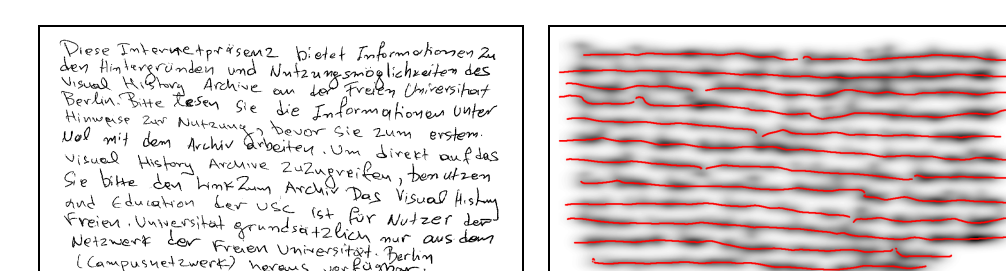 Diese Internetpräsenz bietet Informationen zu
den Hintergründen und Nutzungsmöglichkeiten des
Visual History Archive an der Freien Universität
Berlin. Bitte lesen Sie die Informationen unter
Hinweise zur Nutzung, bevor Sie zum ersten.
Mal mit dem Archiv arbeiten. Um direkt auf das
Visual History Archive zuzugreifen, benutzen
Sie bitte den Link Zum Archiv Das Visual History
and Education der USC ist für Nutzer der
Freien. Universität grundsätzlich nur aus dem
Netzwerk der Freien Universität. Berlin
(Campusnetzwerk) heraus verfügbar.